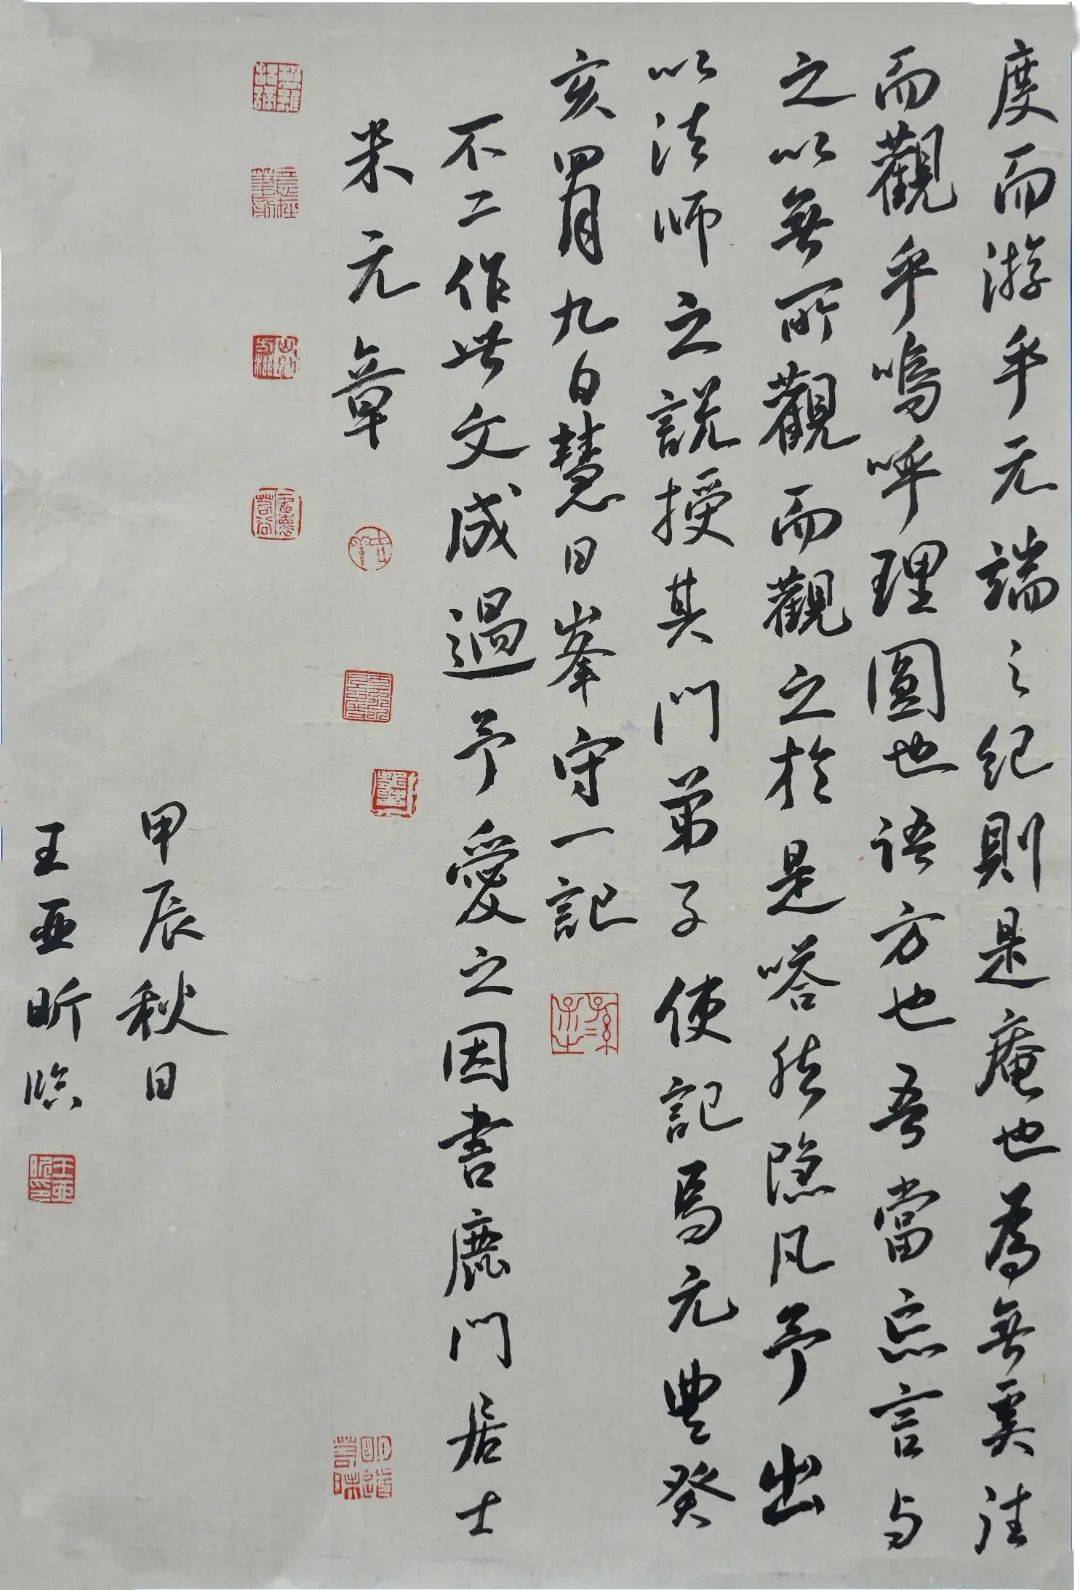 度而游乎无端之紀則是庵也為無奚往
而觀乎嗚呼理圓也語方也吾當忘言与
之以無所觀而觀之於是嗒然隱几予出
以法師之說授其門弟子使記焉元豐癸
亥四月九日慧日峯守一記
不二作此文成過予愛之因書鹿門居士
米元章
甲辰秋日
王亚昕临